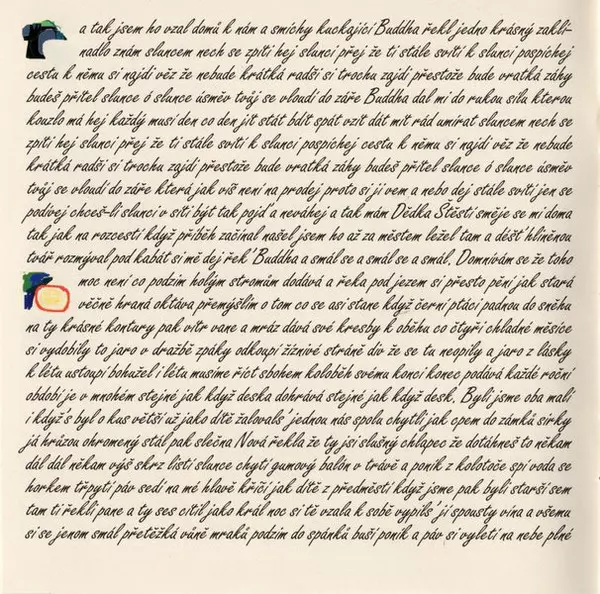 a tak jsem ho vzal domů k nám a smíchy kuckající Buddha řekl jedno krásný zaklí-
nadlo znám sluncem nech se zpíti hej slunci přej že ti stále svítí k slunci pospíchej
cestu k němu si najdi věz že nebude krátká radši si trochu zajdi přestože bude vratká záhy
budeš přítel slunce ó slunce úsměv tvůj se vloudí do záře Buddha dal mi do rukou sílu kterou
kouzlo má hej každý musí den co den jít stát bdít spát vzít dát mít rád umírat sluncem nech se
zpíti hej slunci přej že ti stále svítí k slunci pospíchej cestu k němu si najdi věz že nebude
krátká radši si trochu zajdi přestože bude vratká záhy budeš přítel slunce ó slunce úsměv
tvůj se vloudí do záře která jak víš není na prodej proto si ji vem a nebo dej stále svítí jen se
podívej chceš-li slunci v síti být tak pojď a neváhej a tak mám Dědka Štěstí směje se mi doma
tak jak na rozcestí když příběh začínal našel jsem ho až za městem ležel tam a déšť hliněnou
tvář rozmýval pod kabát si mě dej řek' Buddha a smál se a smál se a smál se. Domnívám se že toho
moc není co podzim holým stromům dodává a řeka pod jezem si přesto pění jak stará
věčně hraná oktáva přemýšlím o tom co se asi stane když černí ptáci padnou do sněhu
na ty krásné kontury pak vítr vane a mráz dává své kresby k oběhu co čtyři chladné měsíce
si vydobyly to jaro v dražbě zpáky odkoupí žíznivé stráně div že se tu neopily a jaro z lásky
k létu ustoupí bohužel i létu musíme říct sbohem koloběh svému konci konec podává každé roční
období je v mnohém stejné jak když deska dohrává stejné jak když desk. Byli jsme oba malí
i když's byl o kus větší už jako dítě žaloval's jednou nás spolu chytli jak cpem do zámků sirky
já hrůzou chromený stál pak slečna Nová řekla že ty jsi slušný chlapec že dotáhneš to někam
dál dál někam výš skrz listí slunce chytí gumový balón v trávě a poník z kolotoče spí voda se
horkem třpytí páv sedí na mé hlavě křičí jak dítě z předměstí když jsme pak byli starší sem
tam ti řekli pane a ty ses cítil jako král noc si tě vzala k sobě vypils' jí spousty vína a všemu
si se jenom smál přetěžká vůně mraků podzim do spánků buší poník a páv si vyletí na nebe plné